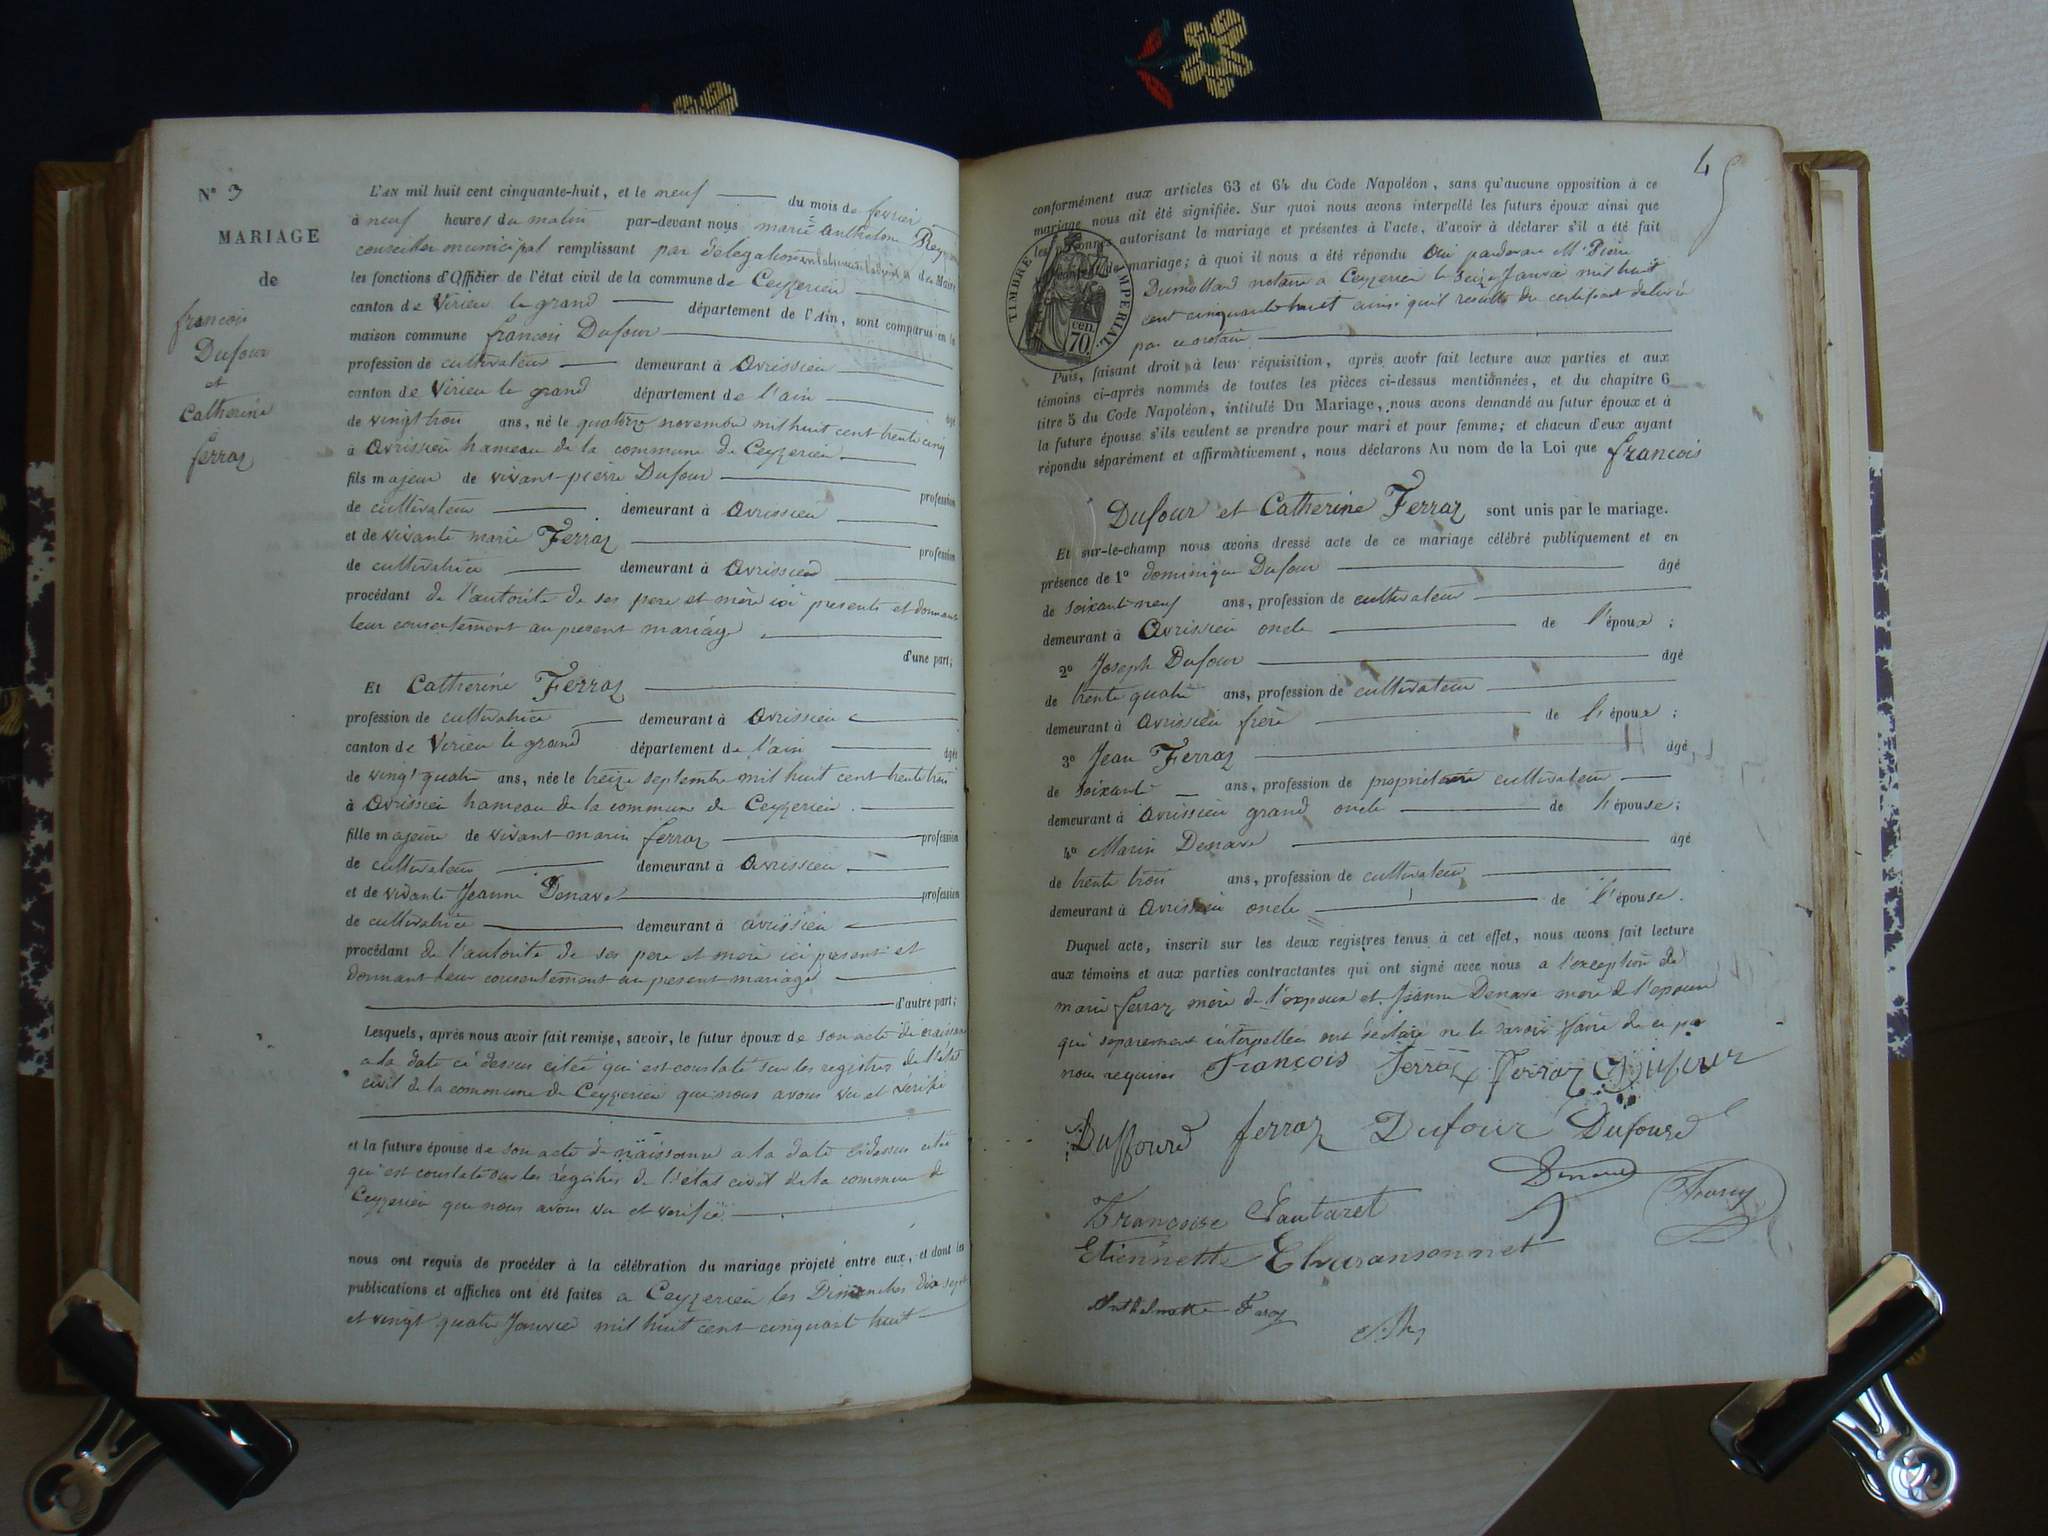 N° 3
MARIAGE
de
françois
Dufour
et
Catherine
ferraz
L'AN mil huit cent cinquante-huit, et le neuf du mois de fevrier
à neuf heures du matin par-devant nous marie Anthelme
conseiller municipal remplissant par délégation du Maire
les fonctions d'Officier de l'état civil de la commune de Ceyzerieu
canton de Virieu le grand département de l'Ain, sont comparus en la
maison commune françois Dufour
profession de cultivateur demeurant à Avrissieu
canton de Virieu le grand département de l'ain âgé
de vingt trois ans, né le quatorze novembre mil huit cent trente cinq
à Avrissieu hameau de la commune de Ceyzerieu
fils majeur de vivant pierre Dufour profession
de cultivateur demeurant à Avrissieu
et de vivante marie Ferraz profession
de cultivatrice demeurant à Avrissieu
procédant de l'autorité de ses pere et mère ici presents et donnant
leur consentement au present mariage
d'une part;
Et Catherine Ferraz
profession de cultivatrice demeurant à Avrissieu
canton de Virieu le grand département de l'ain âgée
de vingt quatre ans, née le treize septembre mil huit cent trente trois
à Avrissieu hameau de la commune de Ceyzerieu
fille majeure de vivant marin ferraz profession
de cultivateur demeurant à Avrissieu
et de vivante Jeanne Denave profession
de cultivatrice demeurant à avrissieu
procédant de l'autorité de ses pere et mère ici present et
donnant leur consentement au present mariage
d'autre part;
Lesquels, après nous avoir fait remise, savoir, le futur époux de son acte de naissance
a la date ci dessus citée qui est constaté sur les registres de l'état
civil de la commune de Ceyzerieu que nous avons vu et vérifié
et la future épouse de son acte de naissance a la date ci dessus citée
qui est constaté sur les régistres de l'état civil de la commune de
Ceyzerieu que nous avons vu et verifié
nous ont requis de procéder à la célébration du mariage projeté entre eux, et dont les
publications et affiches ont été faites a Ceyzerieu les Dimanches dix sept
et vingt quatre Janvier mil huit cent cinquante huit
4
conformément aux articles 63 et 64 du Code Napoléon, sans qu'aucune opposition à ce
mariage nous ait été signifiée. Sur quoi nous avons interpellé les futurs époux ainsi que
les personnes autorisant le mariage et présentes à l'acte, d'avoir à déclarer s'il a été fait
mariage; à quoi il nous a été répondu Oui pardevant Mr Pierre
Dumollard notaire a Ceyzerieu le seize Janvier mil huit
cent cinquante huit ainsi qu'il resulte du certificat delivré
par ce notaire
TIMBRE IMPERIAL
70 cen.
Puis, faisant droit à leur réquisition, après avoir fait lecture aux parties et aux
témoins ci-après nommés de toutes les pièces ci-dessus mentionnées, et du chapitre 6
titre 5 du Code Napoléon, intitulé Du Mariage, nous avons demandé au futur époux et à
la future épouse s'ils veulent se prendre pour mari et pour femme; et chacun d'eux ayant
répondu séparément et affirmativement, nous déclarons Au nom de la Loi que françois
Dufour et Catherine Ferraz sont unis par le mariage.
Et sur-le-champ nous avons dressé acte de ce mariage célébré publiquement et en
présence de 1° dominique Dufour âgé
de soixante neuf ans, profession de cultivateur
demeurant à Avrissieu oncle de l'époux;
2° Joseph Dufour âgé
de trente quatre ans, profession de cultivateur
demeurant à Avrissieu frère de l'époux;
3° Jean Ferraz âgé
de soixante ans, profession de proprietaire cultivateur
demeurant à Avrissieu grand oncle de l'épouse;
4° Marin Denave âgé
de trente trois ans, profession de cultivateur
demeurant à Avrissieu oncle de l'épouse.
Duquel acte, inscrit sur les deux registres tenus à cet effet, nous avons fait lecture
aux témoins et aux parties contractantes qui ont signé avec nous a l'exception de
marie ferraz mère de l'époux et Jeanne Denave mère de l'epouse
qui séparement interpellées ont déclaré ne le savoir faire de ce par
nous requises François Ferraz Ferraz Dufour
Duffourd ferraz Dufour Dufourd
Denave
Françoise Pauturet
Etiennette Charansonnet
Anthelmette